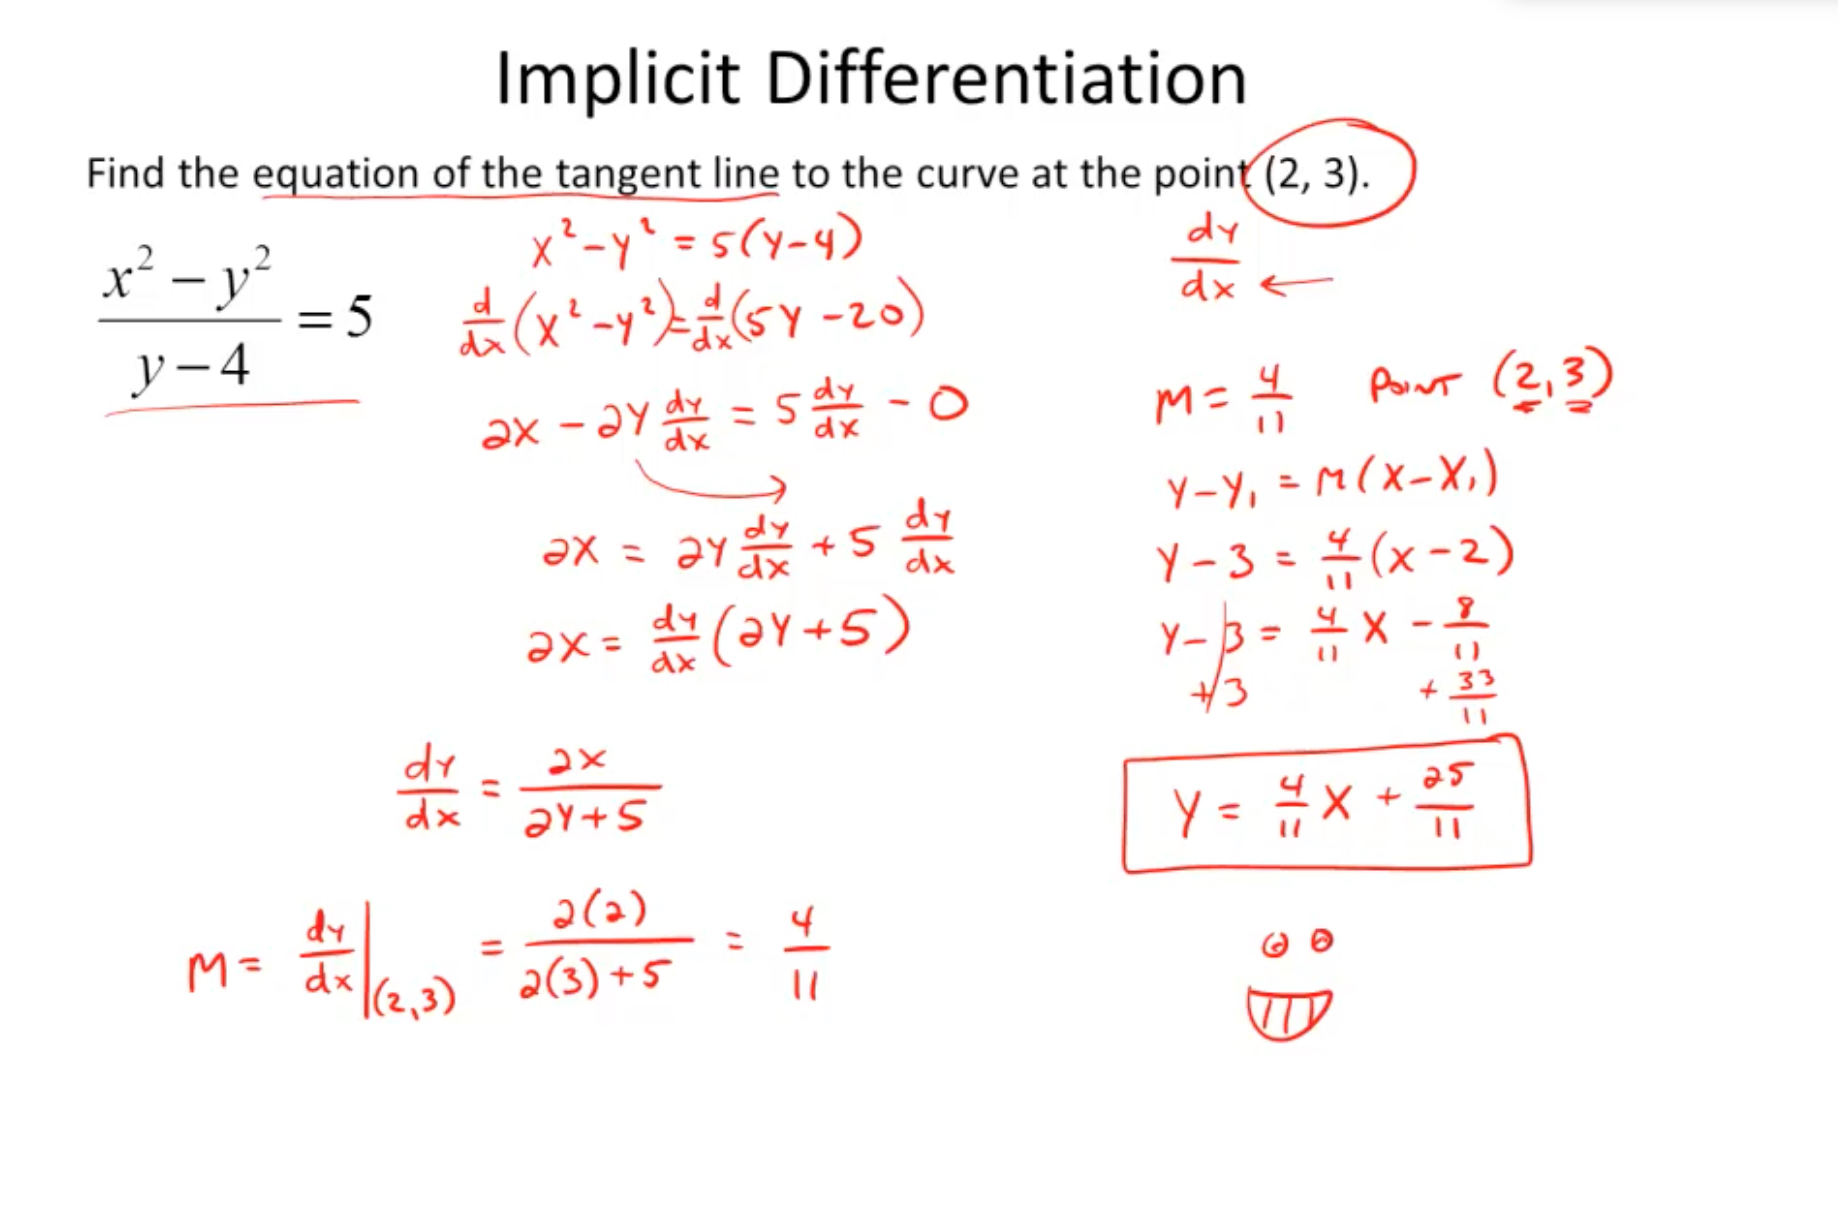 Implicit Differentiation
Find the equation of the tangent line to the curve at the point (2, 3).
(x² − y²)/(y − 4) = 5
x² − y² = 5(y−4)
d/dx (x² − y²) = d/dx (5y − 20)
2x − 2y dy/dx = 5 dy/dx − 0
2x = 2y dy/dx + 5 dy/dx
2x = dy/dx (2y+5)
dy/dx = 2x/(2y+5)
m = dy/dx |(2,3) = (2(2))/(2(3)+5) = 4/11
dy/dx ←
m = 4/11 Point (2,3)
y − y₁ = m(x − x₁)
y − 3 = 4/11 (x − 2)
y − 3 = 4/11 x − 8/11
+3 + 33/11
y = 4/11 x + 25/11